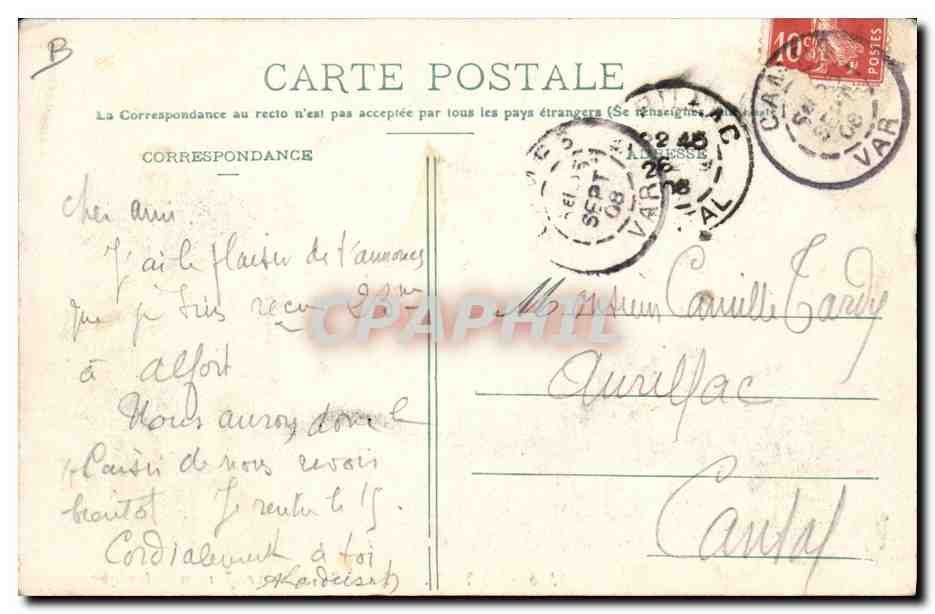 B
CARTE POSTALE
La Correspondance au recto n'est pas acceptée par tous les pays étrangers (Se renseigner
CORRESPONDANCE
ADRESSE
10c
POSTES
CAN
VAR
08
RILLAC
22 45
26
08
AL
SEPT
08
VAR
Cher ami.
J'ai le plaisir de t'annoncer
que je suis reçu 22me
à Alfort
Nous aurons donc le
plaisir de nous revoir
bientot Je rentre le 15.
Cordialement à toi
Monsieur Camille Tardy
Aurillac
Cantal
CPAPHIL